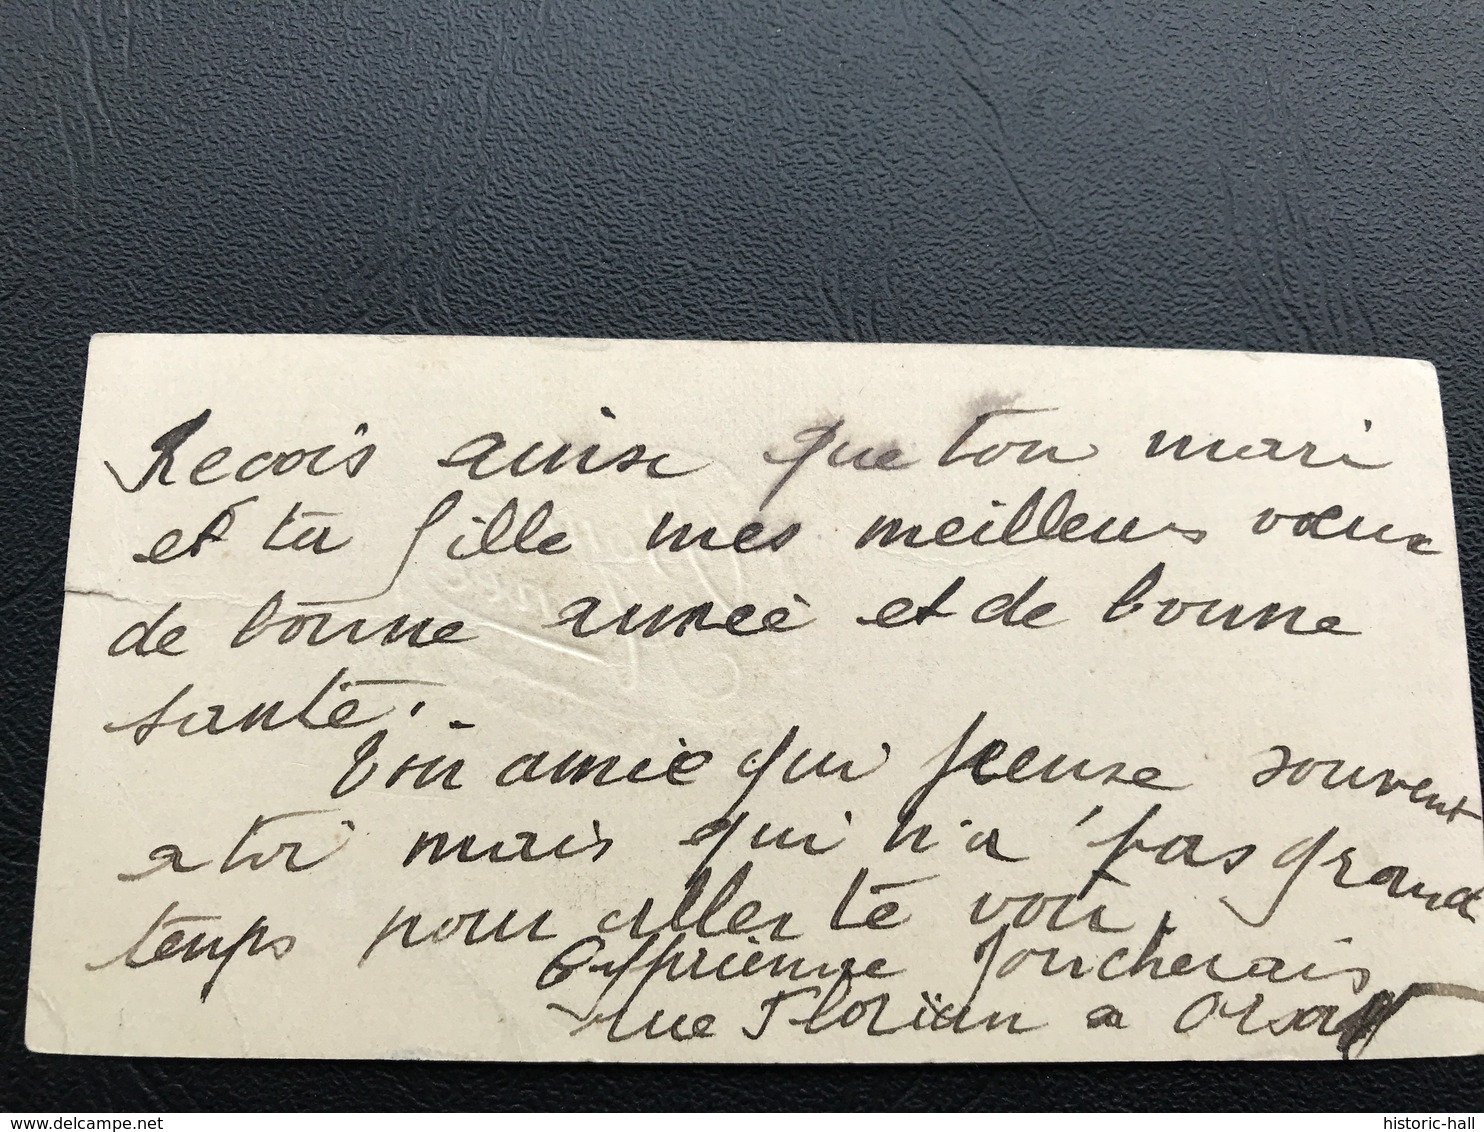 Recois ainsi que ton mari
et ta fille mes meilleurs voeux
de bonne année et de bonne
santé.
Ton amie qui pense souvent
a toi mais qui n'a pas grand
temps pour aller te voir.
rue Florian a
historic-hall